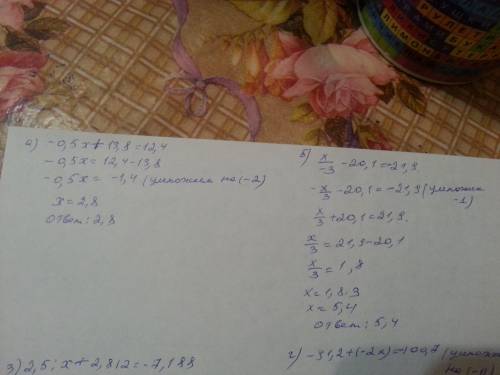 РУЛЕТ
ЛИМОН
а) -0,5x+13,8=12,4
-0,5x=12,4-13,8
-0,5x= -1,4 (умножим на (-2)
x=2,8
Ответ: 2,8
б) x/-3 -20,1=-21,9
-x/3 -20,1=-21,9 (умножим
-1)
x/3 +20,1=21,9.
x/3 =21,9-20,1
x/3 =1,8
x=1,8·3
x=5,4
Ответ: 5,4
3) 2,5; x+2,812=-7,188
г) -31,2+(-2x)=-100,7 (умножим
на (-1)